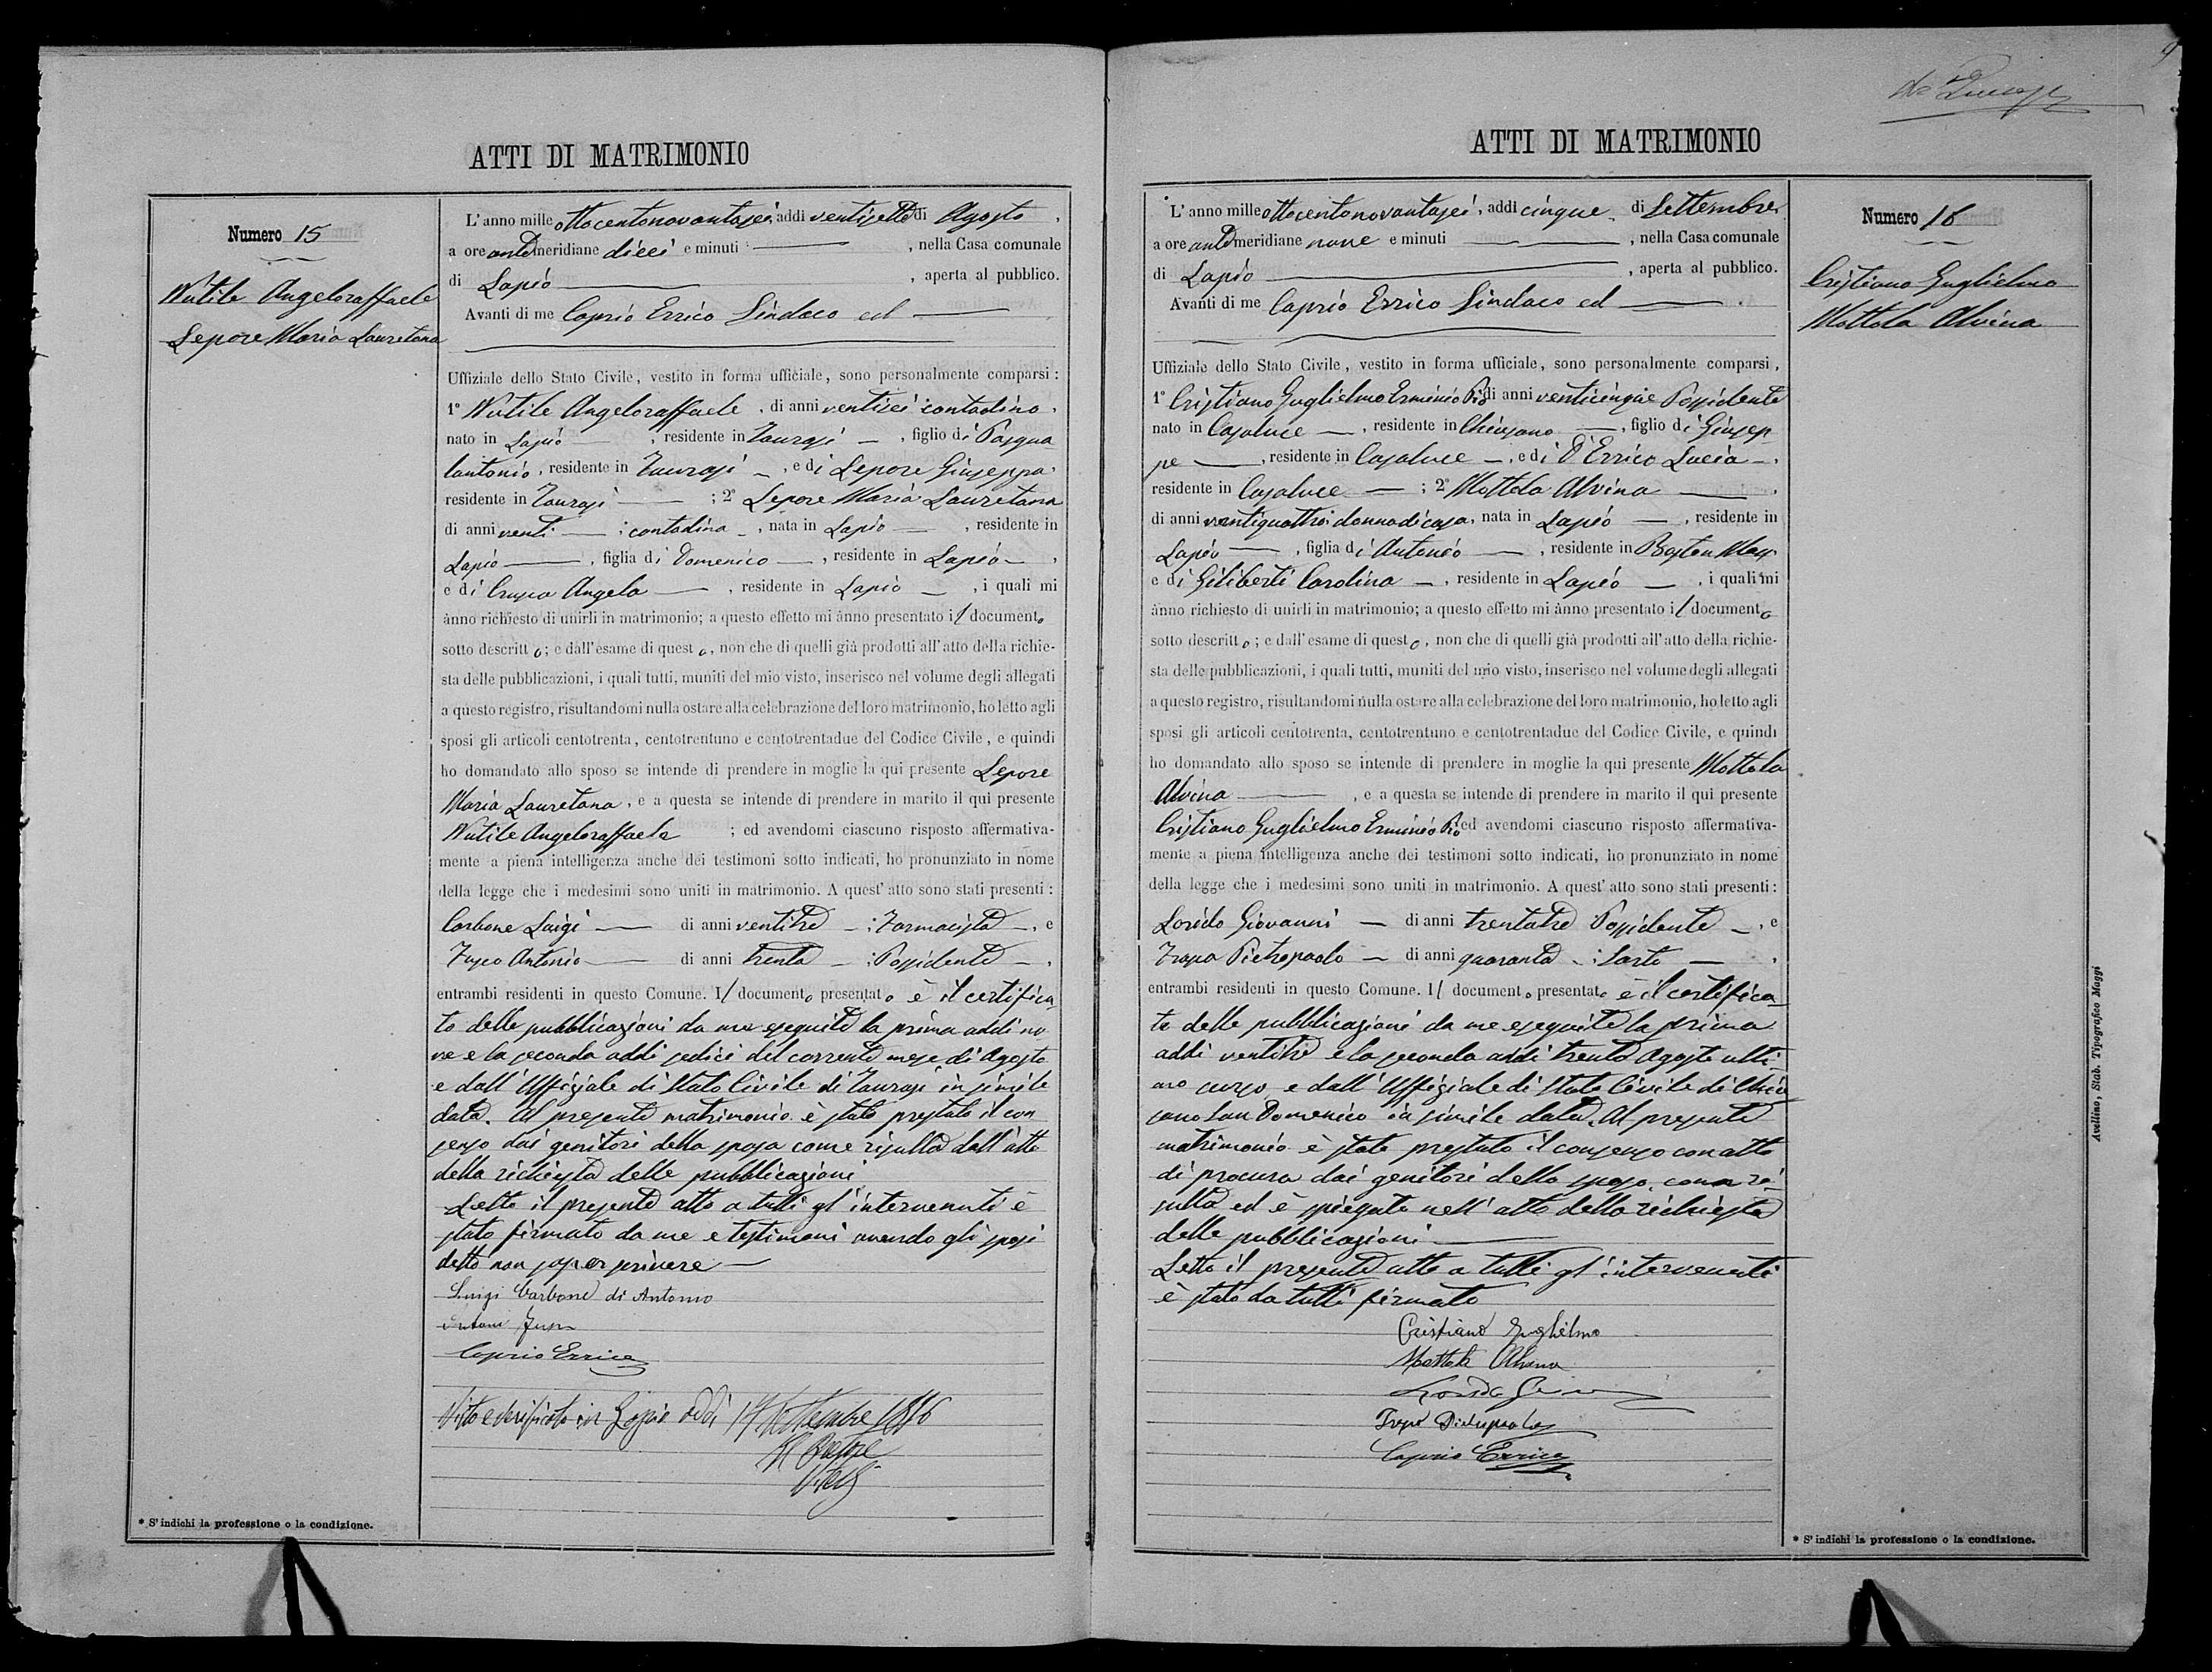 ATTI DI MATRIMONIO
Numero 15
Nutile Angeloraffaele
Lepore Maria Lauretana
L'anno mille ottocentonovantasei, addi ventisette di Agosto,
a ore antimeridiane dieci e minuti , nella Casa comunale
di Lapio , aperta al pubblico.
Avanti di me Caprio Errico Sindaco ed
Uffiziale dello Stato Civile, vestito in forma ufficiale, sono personalmente comparsi:
1° Nutile Angeloraffaele, di anni contadino,
nato in Lapio , residente in Taurasi , figlio di Pasqua
lantonio, residente in Taurasi , e di Lepore Giuseppa,
residente in Taurasi ; 2° Lepore Maria Lauretana
di anni venti ; contadina , nata in Lapio , residente in
Lapio , figlia di Domenico , residente in Lapio ,
e di Angela , residente in Lapio , i quali mi
ànno richiesto di unirli in matrimonio; a questo effetto mi ànno presentato il documento
sotto descritto; e dall'esame di questo, non che di quelli già prodotti all'atto della richie-
sta delle pubblicazioni, i quali tutti, muniti del mio visto, inserisco nel volume degli allegati
a questo registro, risultandomi nulla ostare alla celebrazione del loro matrimonio, ho letto agli
sposi gli articoli centotrenta, centotrentuno e centotrentadue del Codice Civile, e quindi
ho domandato allo sposo se intende di prendere in moglie la qui presente Lepore
Maria Lauretana, e a questa se intende di prendere in marito il qui presente
Nutile Angeloraffaele ; ed avendomi ciascuno risposto affermativa-
mente a piena intelligenza anche dei testimoni sotto indicati, ho pronunziato in nome
della legge che i medesimi sono uniti in matrimonio. A quest'atto sono stati presenti:
Carbone Luigi di anni ventitre ; Farmacista , e
Antonio di anni trenta ; Possidente ,
entrambi residenti in questo Comune. Il documento presentato è il certifica
to delle pubblicazioni da me eseguite la prima addi no
ve e la seconda addi sedici del corrente mese di Agosto
e dall'Uffiziale di Stato Civile di Taurasi in simile
data. Al presente matrimonio è stato prestato il con
senso dai genitori della sposa come risulta dall'atto
della richiesta delle pubblicazioni
Letto il presente atto a tutti gl'intervenuti è
stato firmato da me e testimoni avendo gli sposi
detto non saper scrivere
Luigi Carbone di Antonio
Caprio Errico
Visto e verificato in Lapio addi 14 Settembre 1896
Il Pretore
ATTI DI MATRIMONIO
Numero 16
Cristiano Guglielmo
Mottola Alvina
L'anno mille ottocentonovantasei, addi cinque di Settembre,
a ore antimeridiane nove e minuti , nella Casa comunale
di Lapio , aperta al pubblico.
Avanti di me Caprio Errico Sindaco ed
Uffiziale dello Stato Civile, vestito in forma ufficiale, sono personalmente comparsi,
1° Cristiano Guglielmo Erminio Pio di anni venticinque Possidente
nato in Casaluce , residente in Chiusano , figlio di Giusep
pe , residente in Casaluce , e di D'Errico Lucia ,
residente in Casaluce ; 2° Mottola Alvina ,
di anni ventiquattro; donna di casa, nata in Lapio , residente in
Lapio , figlia di Antonio , residente in Boston Mass.
e di Giliberti Carolina , residente in Lapio , i quali mi
ànno richiesto di unirli in matrimonio; a questo effetto mi ànno presentato il documento
sotto descritto; e dall'esame di questo, non che di quelli già prodotti all'atto della richie-
sta delle pubblicazioni, i quali tutti, muniti del mio visto, inserisco nel volume degli allegati
a questo registro, risultandomi nulla ostare alla celebrazione del loro matrimonio, ho letto agli
sposi gli articoli centotrenta, centotrentuno e centotrentadue del Codice Civile, e quindi
ho domandato allo sposo se intende di prendere in moglie la qui presente Mottola
Alvina , e a questa se intende di prendere in marito il qui presente
Cristiano Guglielmo Erminio Pio ed avendomi ciascuno risposto affermativa-
mente a piena intelligenza anche dei testimoni sotto indicati, ho pronunziato in nome
della legge che i medesimi sono uniti in matrimonio. A quest'atto sono stati presenti:
Loride Giovanni di anni trentatre Possidente , e
Pietropaolo di anni quaranta ; Sarto ,
entrambi residenti in questo Comune. Il documento presentato è il certifica
to delle pubblicazioni da me eseguite la prima
addi ventitre e la seconda addi trenta Agosto ulti
mo scorso e dall'Uffiziale di Stato Civile di Chiu
sano San Domenico in simile data. Al presente
matrimonio è stato prestato il consenso con atto
di procura dai genitori dello sposo, come ri
sulta ed è spiegato nell'atto della richiesta
delle pubblicazioni
Letto il presente atto a tutti gl'intervenuti
è stato da tutti firmato
Cristiano Guglielmo
Mottola Alvina
Caprio Errico
* S'indichi la professione o la condizione.
* S'indichi la professione o la condizione.
Avellino, Stab. Tipografico Maggi